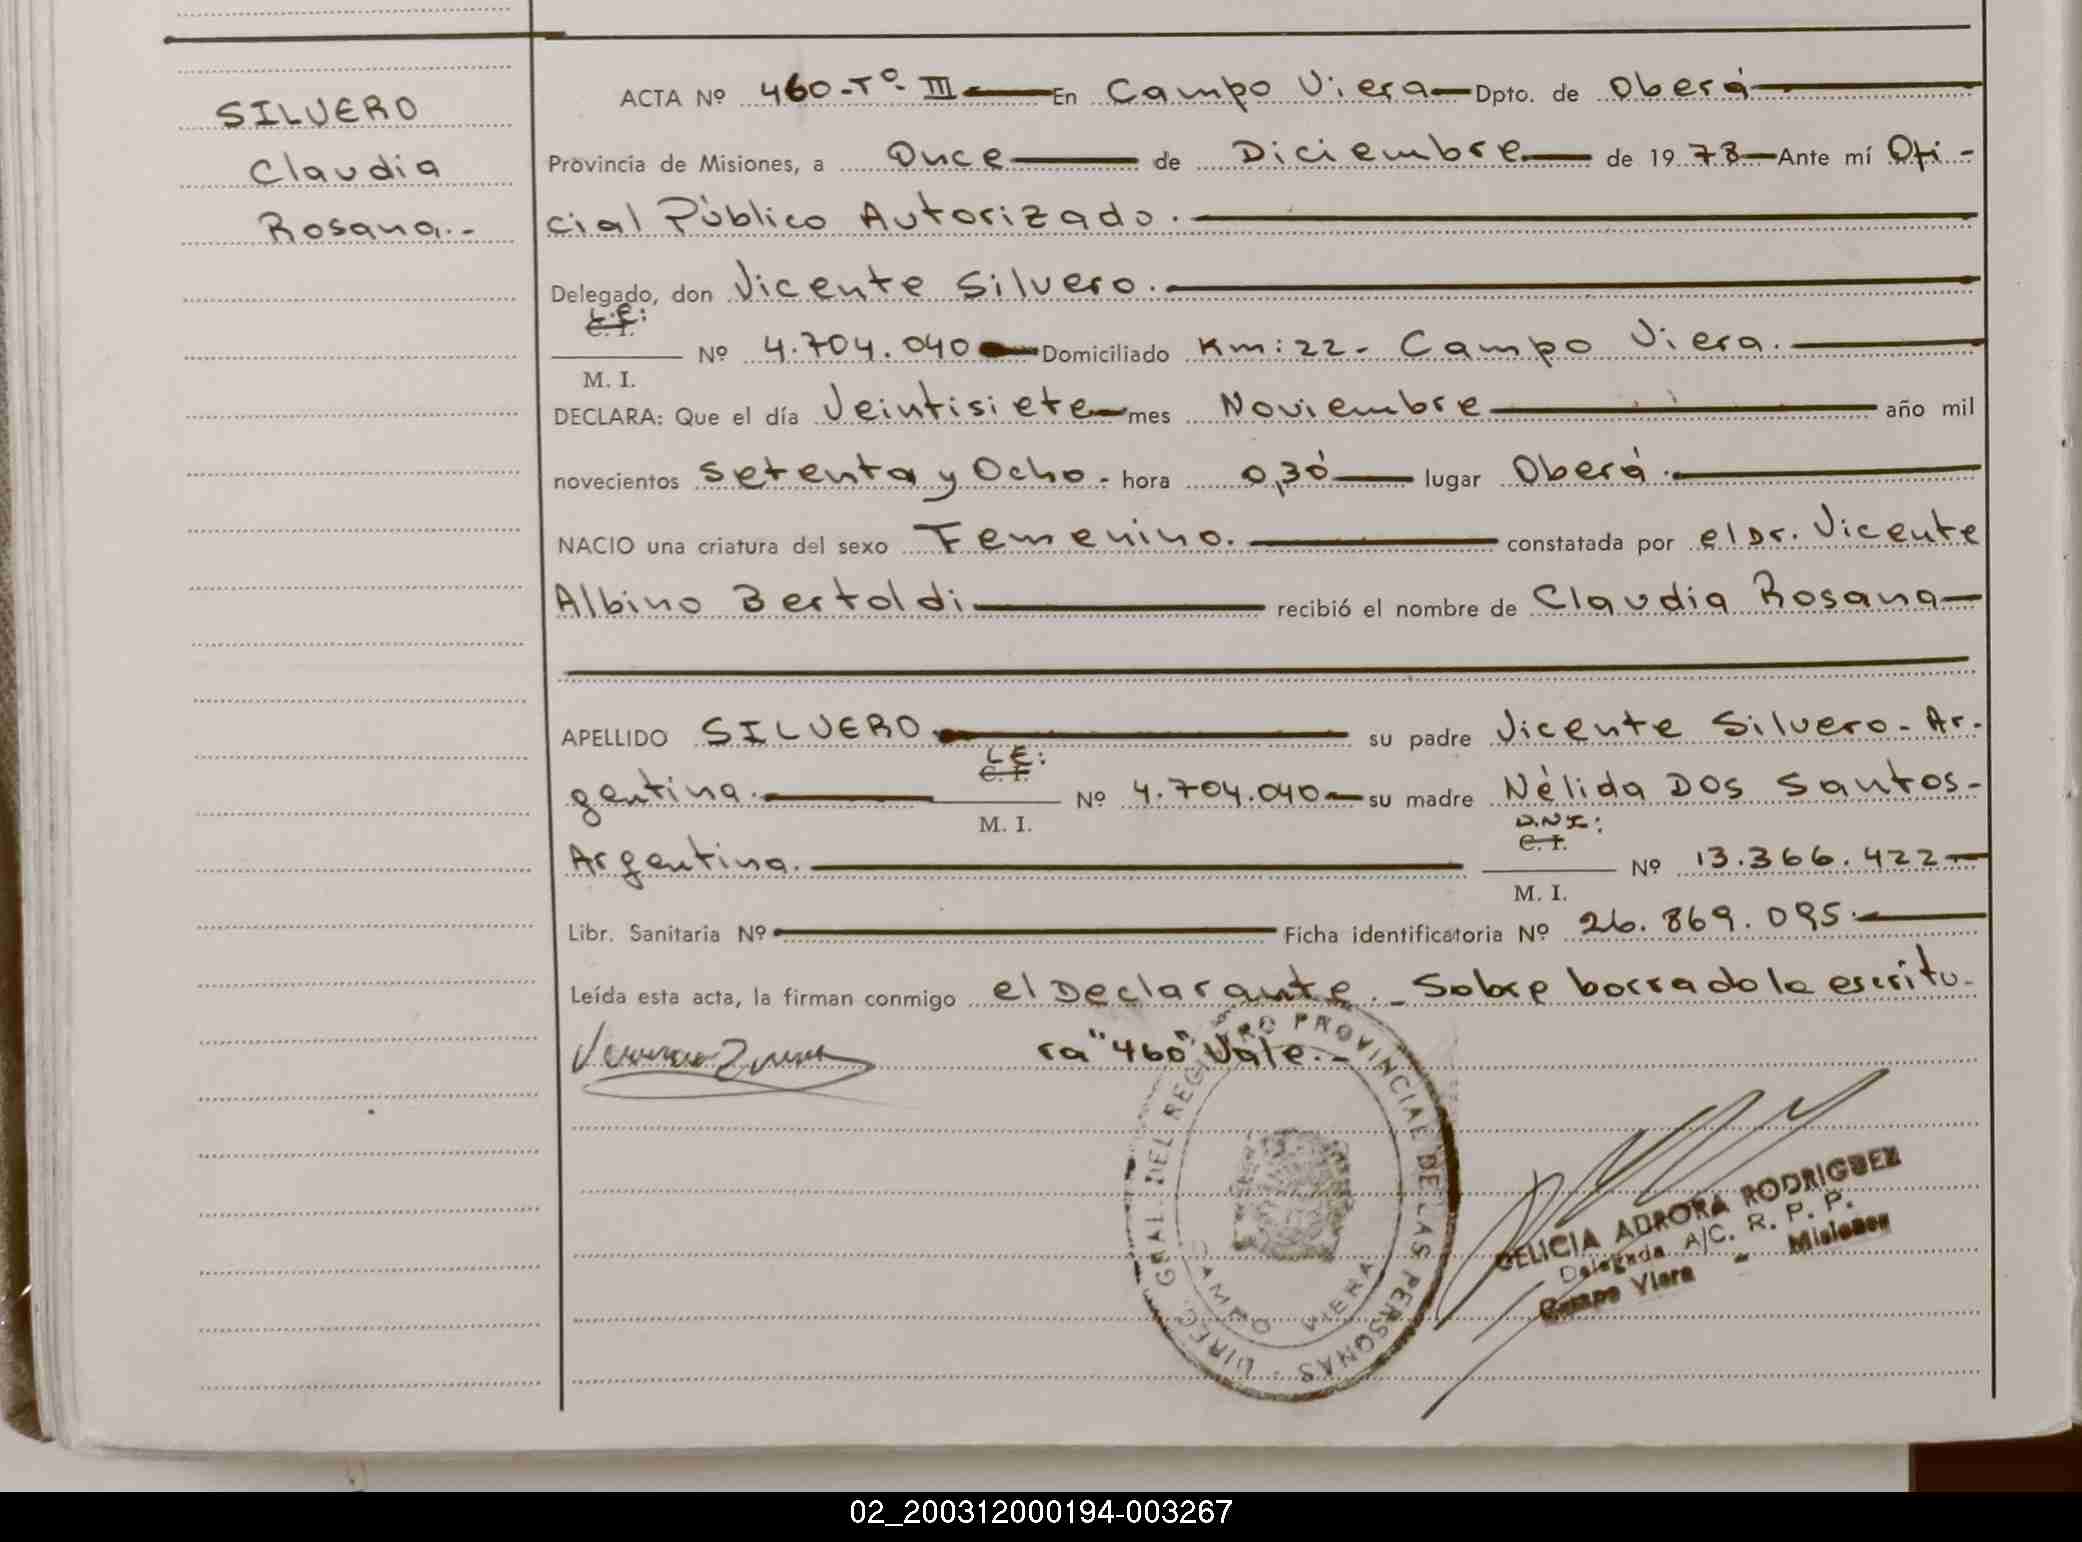 SILVERO
Claudia
Rosana.-
ACTA Nº 460-Tº-III En Campo Viera Dpto. de Oberá
Provincia de Misiones, a Once de Diciembre de 1978 Ante mí Ofi-
cial Público Autorizado.
Delegado, don Vicente Silvero.
L.E:
C. I.
Nº 4.704.040 Domiciliado Km: 22- Campo Viera.
M. I.
DECLARA: Que el día Veintisiete mes Noviembre año mil
novecientos setenta y Ocho- hora 0,30 lugar Oberá.
NACIO una criatura del sexo Femenino. constatada por el Dr. Vicente
Albino Bertoldi recibió el nombre de Claudia Rosana
APELLIDO SILVERO su padre Vicente Silvero- Ar-
L E:
C. I.
gentina. Nº 4.704.040 su madre Nélida Dos Santos-
M. I.
D.N.I:
C. I.
Argentina. Nº 13.366.422
M. I.
Libr. Sanitaria Nº Ficha identificatoria Nº 26.869.095.
Leída esta acta, la firman conmigo el Declarante.- Sobre borrado la escritu-
ra "460" Vale.-
DIREC. GRAL. DEL REGISTRO PROVINCIAL DE LAS PERSONAS -
CAMPO VIERA
CELICIA AURORA RODRIGUEZ
Delegada A/C. R. P. P.
Campo Viera - Misiones
02_200312000194-003267